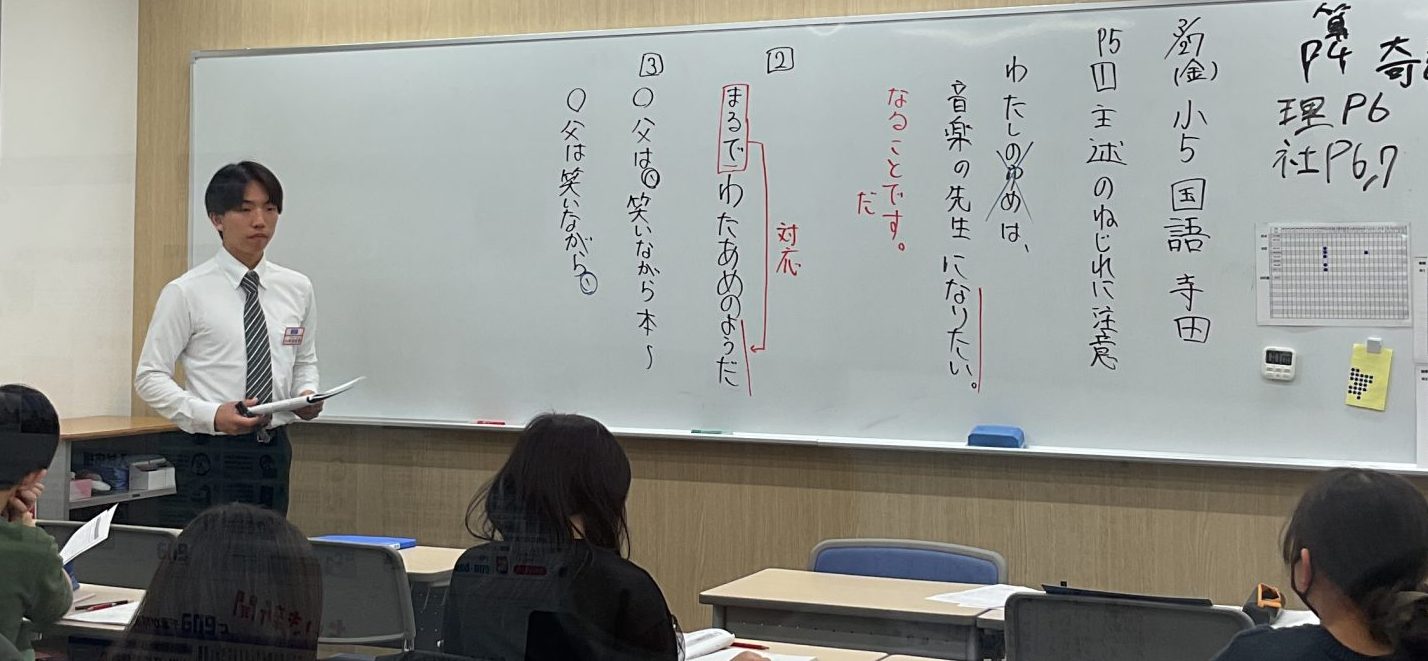 算P4 奇
理P6
社P6,7
3/27(金) 小5 国語 寺田
P5 1 主述のねじれに注意
わたしのゆめは、
音楽の先生になりたい。
なることです。
だ
2
対応
まるでわたあめのようだ
3 ○父は、笑いながら本〜
○父は笑いながら、